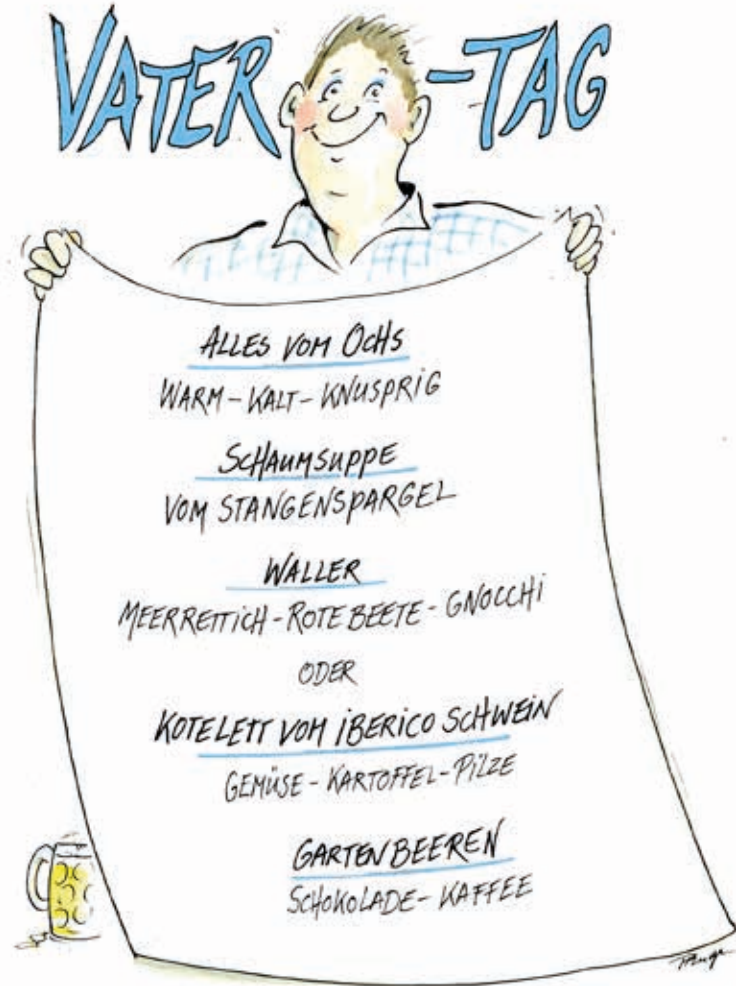 VATER-TAG
ALLES VOM OCHS
WARM-KALT-KNUSPRIG
SCHAUMSUPPE
VOM STANGENSPARGEL
WALLER
MEERRETTICH-ROTE BEETE-GNOCCHI
ODER
KOTELETT VOM IBERICO SCHWEIN
GEMÜSE-KARTOFFEL-PILZE
GARTENBEEREN
SCHOKOLADE-KAFFEE